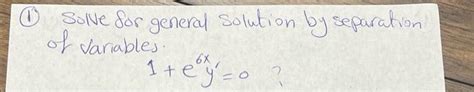 ① Solve for general solution by separation
of variables.
1 + e^{6x} y' = 0 ?